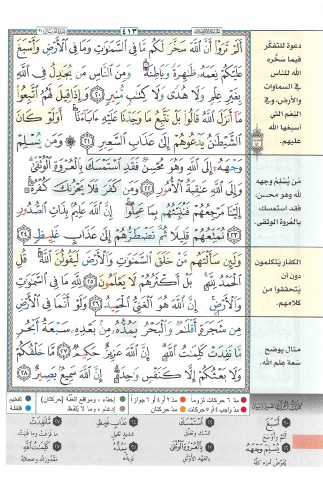 ٤١٣
أَلَمْ تَرَوْا۟ أَنَّ ٱللَّهَ سَخَّرَ لَكُم مَّا فِى ٱلسَّمَٰوَٰتِ وَمَا فِى ٱلْأَرْضِ وَأَسْبَغَ
عَلَيْكُمْ نِعَمَهُۥ ظَٰهِرَةً وَبَاطِنَةً ۗ وَمِنَ ٱلنَّاسِ مَن يُجَٰدِلُ فِى ٱللَّهِ
بِغَيْرِ عِلْمٍ وَلَا هُدًى وَلَا كِتَٰبٍ مُّنِيرٍ ٢٠ وَإِذَا قِيلَ لَهُمُ ٱتَّبِعُوا۟
مَآ أَنزَلَ ٱللَّهُ قَالُوا۟ بَلْ نَتَّبِعُ مَا وَجَدْنَا عَلَيْهِ ءَابَآءَنَآ ۚ أَوَلَوْ كَانَ
ٱلشَّيْطَٰنُ يَدْعُوهُمْ إِلَىٰ عَذَابِ ٱلسَّعِيرِ ٢١ ۞ وَمَن يُسْلِمْ
وَجْهَهُۥٓ إِلَى ٱللَّهِ وَهُوَ مُحْسِنٌ فَقَدِ ٱسْتَمْسَكَ بِٱلْعُرْوَةِ ٱلْوُثْقَىٰ ۗ
وَإِلَى ٱللَّهِ عَٰقِبَةُ ٱلْأُمُورِ ٢٢ وَمَن كَفَرَ فَلَا يَحْزُنكَ كُفْرُهُۥٓ ۚ
إِلَيْنَا مَرْجِعُهُمْ فَنُنَبِّئُهُم بِمَا عَمِلُوٓا۟ ۚ إِنَّ ٱللَّهَ عَلِيمٌۢ بِذَاتِ ٱلصُّدُورِ
٢٣ نُمَتِّعُهُمْ قَلِيلًا ثُمَّ نَضْطَرُّهُمْ إِلَىٰ عَذَابٍ غَلِيظٍ ٢٤
وَلَئِن سَأَلْتَهُم مَّنْ خَلَقَ ٱلسَّمَٰوَٰتِ وَٱلْأَرْضَ لَيَقُولُنَّ ٱللَّهُ ۚ قُلِ
ٱلْحَمْدُ لِلَّهِ ۚ بَلْ أَكْثَرُهُمْ لَا يَعْلَمُونَ ٢٥ لِلَّهِ مَا فِى ٱلسَّمَٰوَٰتِ
وَٱلْأَرْضِ ۚ إِنَّ ٱللَّهَ هُوَ ٱلْغَنِىُّ ٱلْحَمِيدُ ٢٦ وَلَوْ أَنَّمَا فِى ٱلْأَرْضِ
مِن شَجَرَةٍ أَقْلَٰمٌ وَٱلْبَحْرُ يَمُدُّهُۥ مِنۢ بَعْدِهِۦ سَبْعَةُ أَبْحُرٍ
مَّا نَفِدَتْ كَلِمَٰتُ ٱللَّهِ ۗ إِنَّ ٱللَّهَ عَزِيزٌ حَكِيمٌ ٢٧ مَّا خَلْقُكُمْ
وَلَا بَعْثُكُمْ إِلَّا كَنَفْسٍ وَٰحِدَةٍ ۗ إِنَّ ٱللَّهَ سَمِيعٌۢ بَصِيرٌ ٢٨
دعوة للتفكّر
فيما سخّره
الله للناس
في السماوات
والأرض، وفي
النعم التي
أسبغها الله
عليهم.
مَن يُسْلِم وجهه
لله وهو محسن،
فقد استمسك
بالعروة الوثقى.
الكفار يتكلمون
دون أن
يتحققوا من
كلامهم.
مثال يوضح
سَعة علم الله.
مدّ ٦ حركات لزوماً
مدّ ٢ أو ٤ أو ٦ جوازاً
إخفاء، ومواقع الغُنَّة (حركتان)
تفخيم
مدّ واجب ٤ أو ٥ حركات
مدّ حركتان
إدغام، وما لا يُلفَظ
قلقلة
أَسْبَغَ
أتمّ وأوسع
اسْتَمْسَكَ
بِالْعُرْوَةِ الْوُثْقَىٰ
عَذَابٍ غَلِيظٍ
يَمُدُّهُ
مَّا نَفِدَتْ